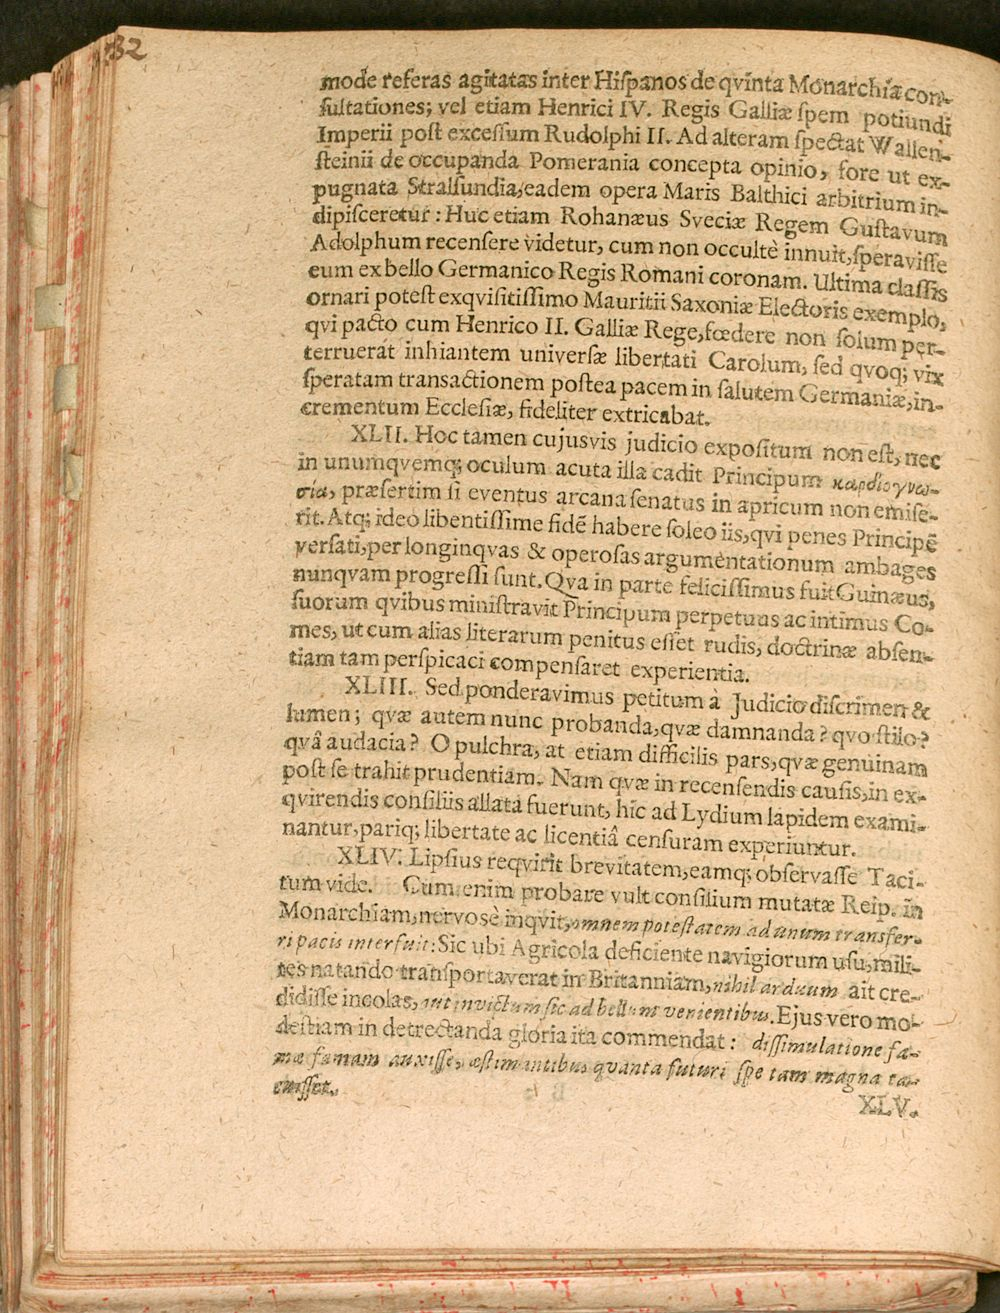 132
mode referas agitatas inter Hiſpanos de qvinta Monarchiâ con-
ſultationes; vel etiam Henrici IV. Regis Galliæ ſpem potiundi
Imperii poſt exceſſum Rudolphi II. Ad alteram ſpectat Wallen-
ſteinii de occupanda Pomerania concepta opinio, fore ut ex-
pugnata Stralſundia, eadem opera Maris Balthici arbitrium in-
dipiſceretur: Huc etiam Rohanæus Sveciæ Regem Guſtavum
Adolphum recenſere videtur, cum non occultè innuit, ſperaviſſe
eum ex bello Germanico Regis Romani coronam. Ultima claſſis
ornari poteſt exqviſitiſſimo Mauritii Saxoniæ Electoris exemplo,
qvi pacto cum Henrico II. Galliæ Rege, fœdere non ſolum per-
terruerat inhiantem univerſæ libertati Carolum, ſed qvoq; vix
ſperatam transactionem poſtea pacem in ſalutem Germaniæ, in-
crementum Eccleſiæ, fideliter extricabat.
XLII. Hoc tamen cujusvis judicio expoſitum non eſt, nec
in unumqvemq; oculum acuta illa cadit Principum καρδιογνω-
σία, præſertim ſi eventus arcana ſenatus in apricum non emiſe-
rit. Atq; ideo libentiſſime fidẽ habere ſoleo iis, qvi penes Principẽ
verſati, per longinqvas & operoſas argumentationum ambages
nunqvam progreſſi ſunt. Qva in parte feliciſſimus fuit Guinæus,
ſuorum qvibus miniſtravit Principum perpetuus ac intimus Co-
mes, ut cum alias literarum penitus eſſet rudis, doctrinæ abſen-
tiam tam perſpicaci compenſaret experientia.
XLIII. Sed ponderavimus petitum à Judicio diſcrimen &
lumen; qvæ autem nunc probanda, qvæ damnanda? qvo ſtilo?
qvâ audacia? O pulchra, at etiam difficilis pars, qvæ genuinam
poſt ſe trahit prudentiam. Nam qvæ in recenſendis cauſis, in ex-
qvirendis conſiliis allata fuerunt, hîc ad Lydium lapidem exami-
nantur, pariq; libertate ac licentiâ cenſuram experiuntur.
XLIV. Lipſius reqvirit brevitatem, eamq; obſervaſſe Taci-
tum vide. Cum enim probare vult conſilium mutatæ Reip. in
Monarchiam, nervosè inqvit, omnem poteſtatem ad unum transfer-
ri pacis interfuit: Sic ubi Agricola deficiente navigiorum uſu, mili-
tes natando transportaverat in Britanniam, nihil arduum ait cre-
didiſſe incolas, aut invictum ſic ad bellum venientibus. Ejus vero mo-
deſtiam in detrectanda gloria ita commendat: diſſimulatione fa-
mæ famam auxiſſe, æſtimantibus qvanta futuri ſpe tam magna ta-
cuiſſet.
XLV.